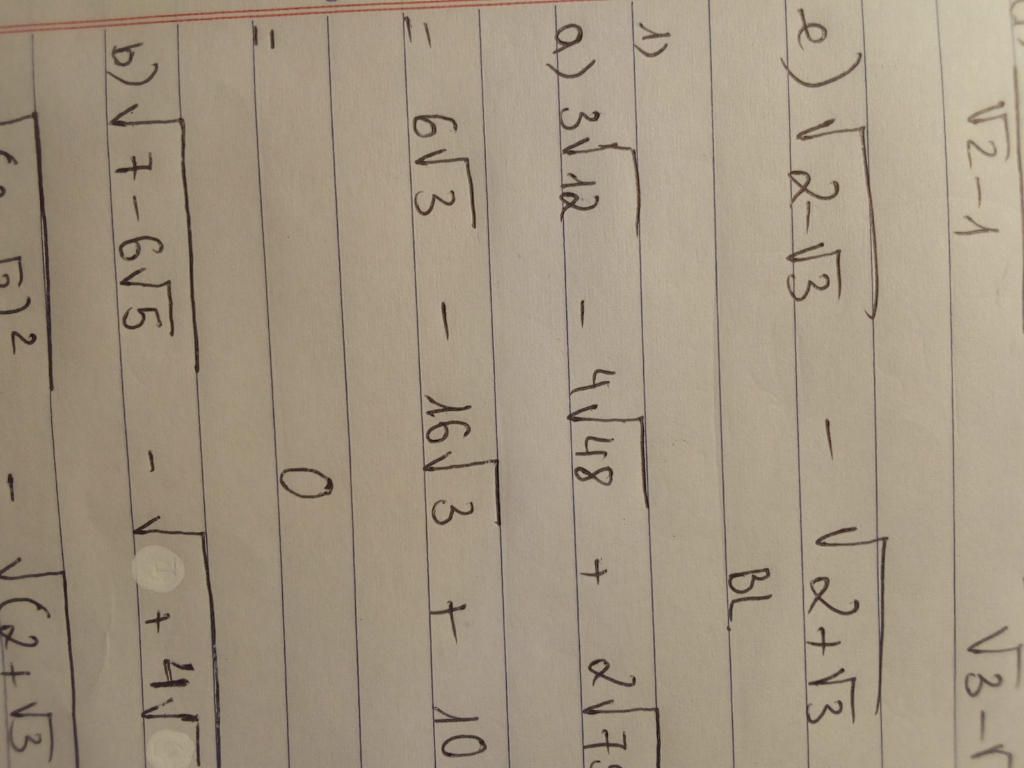 √2 - 1 √3 -
e) √(2-√3) - √(2+√3)
BL
1)
a) 3√12 - 4√48 + 2√7
= 6√3 - 16√3 + 10
= 0
b) √(7-6√5) - √( + 4√
)² - √(2+√3